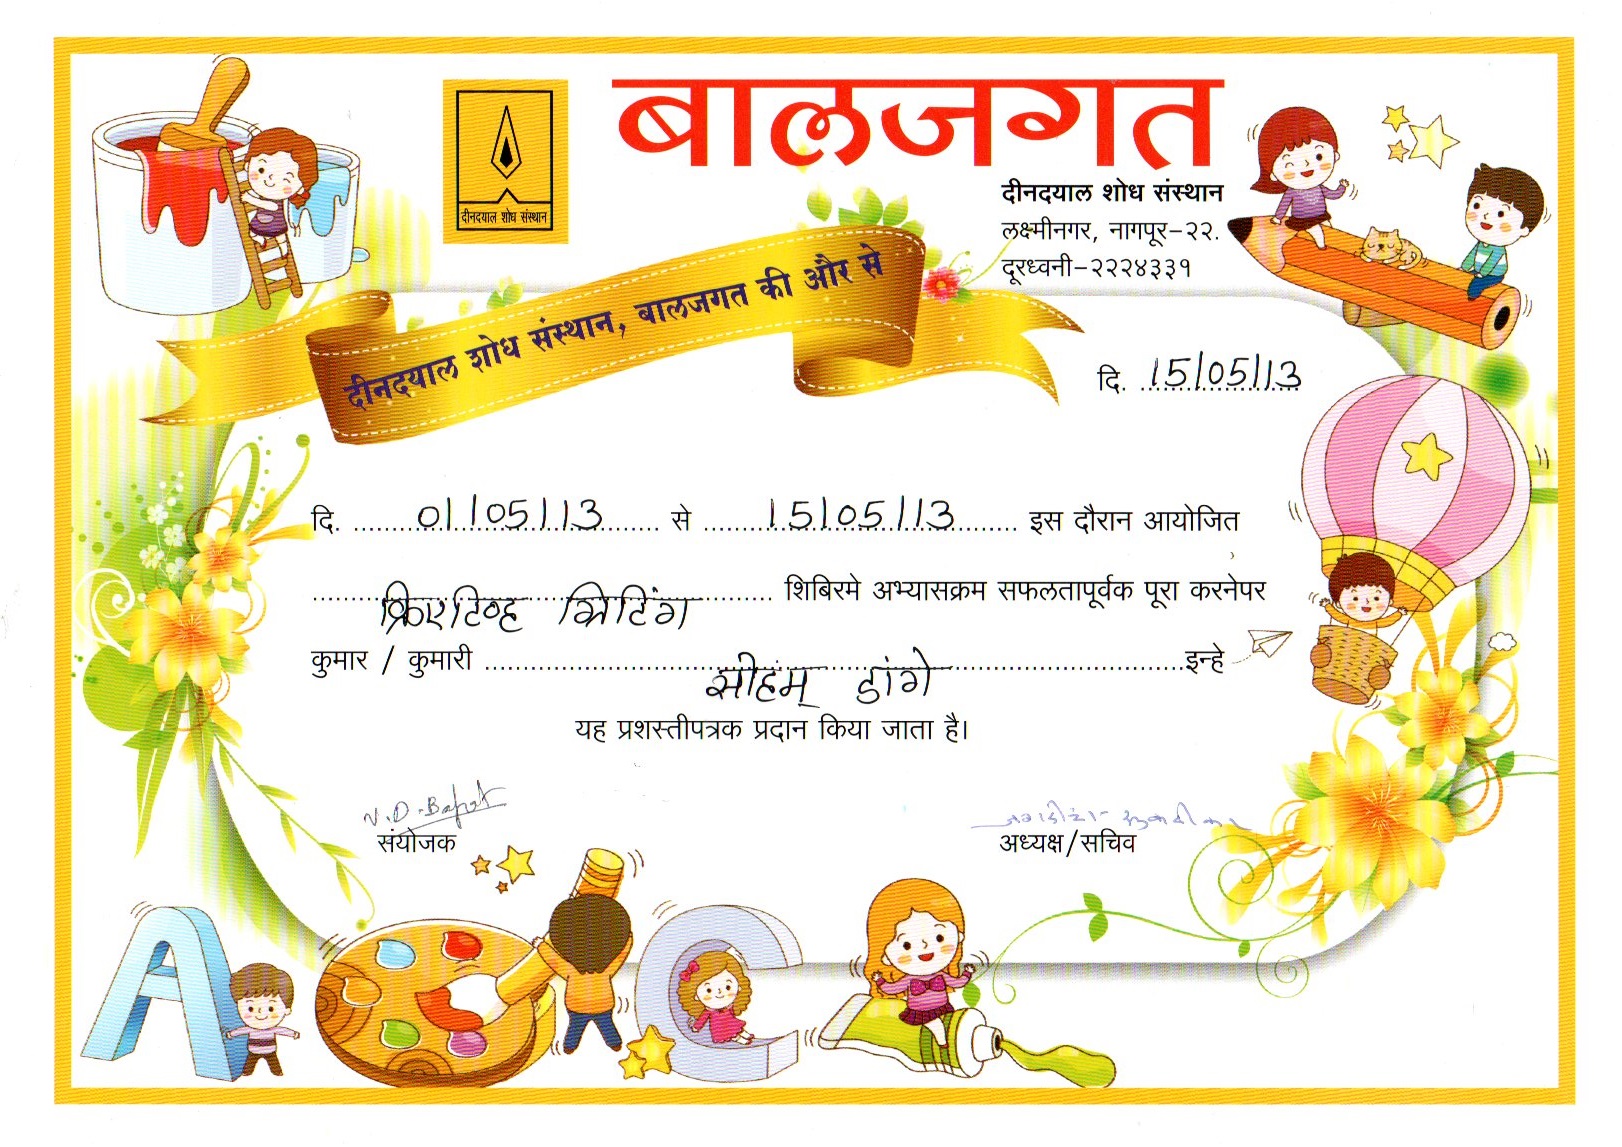 बालजगत
दीनदयाल शोध संस्थान
दीनदयाल शोध संस्थान
लक्ष्मीनगर, नागपूर-२२.
दूरध्वनी-२२२४३३१
दीनदयाल शोध संस्थान, बालजगत की और से
दि. 15/05/13
दि. 01/05/13 से 15/05/13 इस दौरान आयोजित
क्रिएटिव्ह शिबिरमे अभ्यासक्रम सफलतापूर्वक पूरा करनेपर
कुमार / कुमारी सोहम् डांगे इन्हे
यह प्रशस्तीपत्रक प्रदान किया जाता है।
V. D. Bapat
संयोजक
अध्यक्ष/सचिव
A
C